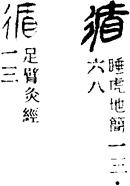 睡虎地簡一三·
六八
循
足臂灸經
一三